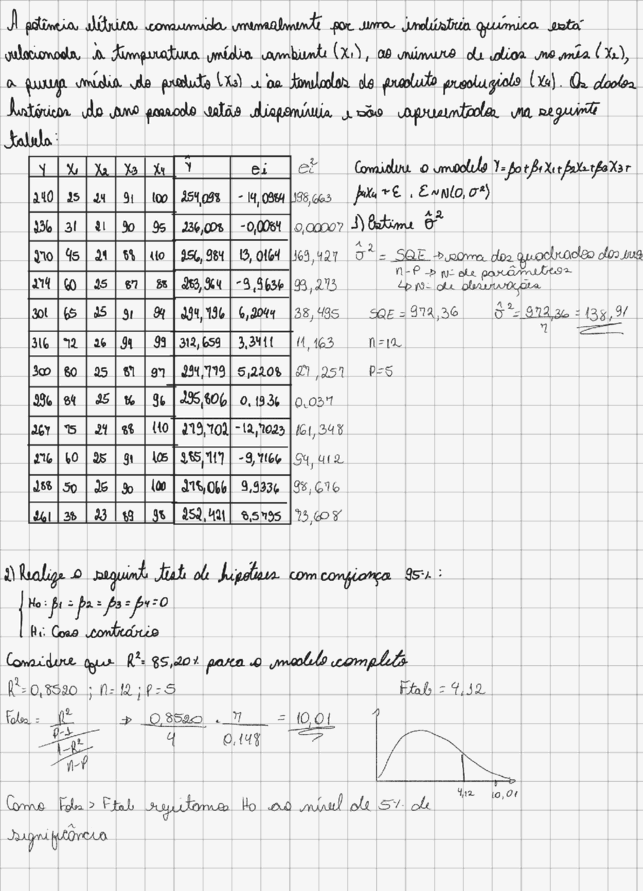 A potência elétrica consumida mensalmente por uma indústria química está
relacionada à temperatura média ambiente (x1), ao número de dias no mês (x2),
a pureza média do produto (x3) e às toneladas do produto produzido (x4). Os dados
históricos do ano passado estão disponíveis e são apresentados na seguinte
tabela:
Y X1 X2 X3 X4 Ŷ ei ei²
240 25 24 91 100 254,098 -14,0984 198,663
236 31 21 90 95 236,008 -0,0084 0,00007
270 45 24 88 110 256,984 13,0164 169,427
274 60 25 87 88 283,964 -9,9636 99,273
301 65 25 91 94 294,796 6,2044 38,495
316 72 26 94 99 312,659 3,3411 11,163
300 80 25 87 97 294,779 5,2208 27,257
296 84 25 86 96 295,806 0,1936 0,037
267 75 24 88 110 279,702 -12,7023 161,348
276 60 25 91 105 285,717 -9,7166 94,412
288 50 25 90 100 278,066 9,9336 98,676
261 38 23 89 98 252,421 8,5795 73,608
Considere o modelo Y=β0+β1X1+β2X2+β3X3+
β4X4 + ε, ε~N(0, σ²)
1) Estime σ̂²
σ̂² = SQE → soma dos quadrados dos
n-P → Nº de parâmetros
↳ Nº de observações
SQE = 972,36 σ̂² = 972,36 / 7 = 138,91
n=12
P=5
2) Realize o seguinte teste de hipóteses com confiança 95%:
H0: β1 = β2 = β3 = β4 = 0
H1: Caso contrário
Considere que R²= 85,20% para o modelo completo
R²=0,8520 ; n=12 ; P=5
Ftab = 4,12
Fobs = R² / P-1 / 1-R² / n-P → 0,8520 / 4 · 7 / 0,148 = 10,01
4,12 10,01
Como Fobs > Ftab rejeitamos H0 ao nível de 5% de
significância